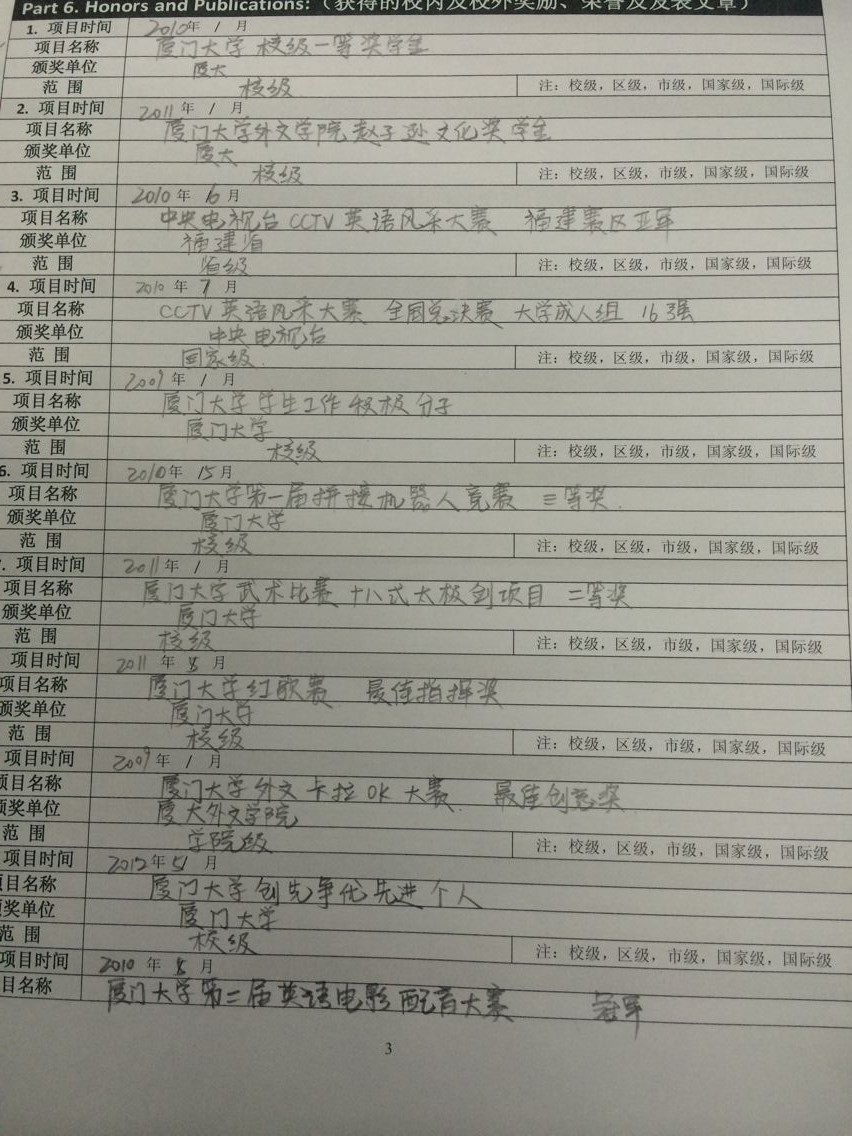 Part 6. Honors and Publications:（获得的校内及校外奖励、荣誉及发表文章）
1. 项目时间 2010年 1 月
项目名称 厦门大学 校级一等奖学金
颁奖单位 厦大
范 围 校级 注：校级，区级，市级，国家级，国际级
2. 项目时间 2011 年 1 月
项目名称 厦门大学外文学院赵子孙文化奖学金
颁奖单位 厦大
范 围 校级 注：校级，区级，市级，国家级，国际级
3. 项目时间 2010 年 6 月
项目名称 中央电视台CCTV英语风采大赛 福建赛区亚军
颁奖单位 福建省
范 围 省级 注：校级，区级，市级，国家级，国际级
4. 项目时间 2010 年 7 月
项目名称 CCTV英语风采大赛 全国总决赛 大学成人组 16强
颁奖单位 中央电视台
范 围 国家级. 注：校级，区级，市级，国家级，国际级
5. 项目时间 2009 年 1 月
项目名称 厦门大学学生工作积极分子
颁奖单位 厦门大学
范 围 校级 注：校级，区级，市级，国家级，国际级
6. 项目时间 2010年 月
项目名称 厦门大学第一届拼接机器人竞赛 三等奖.
颁奖单位 厦门大学
范 围 校级 注：校级，区级，市级，国家级，国际级
. 项目时间 2011 年 1 月
项目名称 厦门大学武术比赛 十八式太极剑项目 二等奖
颁奖单位 厦门大学
范 围 校级 注：校级，区级，市级，国家级，国际级
项目时间 2011 年 月
项目名称 厦门大学红歌赛 最佳指挥奖
颁奖单位 厦门大学
范 围 校级 注：校级，区级，市级，国家级，国际级
项目时间 2009 年 1 月
项目名称 厦门大学外文卡拉OK大赛. 最佳创意奖
颁奖单位 厦大外文学院
范 围 学院级 注：校级，区级，市级，国家级，国际级
项目时间 2012年 月
项目名称 厦门大学创先争优先进个人
奖单位 厦门大学
范 围 校级 注：校级，区级，市级，国家级，国际级
项目时间 2010 年 月
目名称 厦门大学第二届英语电影配音大赛 冠军
3